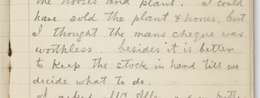 the horses and plant. I could
have sold the plant & horses, but
I thought the mans cheque was
worthless. besides it is better
to keep the stock in hand till we
decide what to do.
I asked